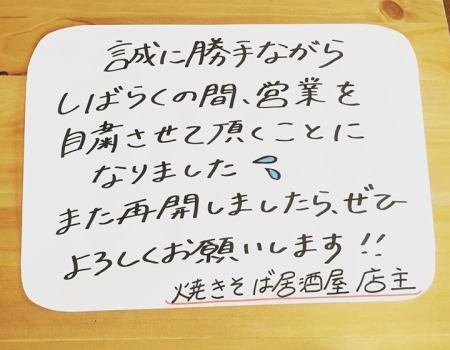 誠に勝手ながら
しばらくの間、営業を
自粛させて頂くことに
なりました💦
また再開しましたら、ぜひ
よろしくお願いします!!
焼きそば居酒屋 店主